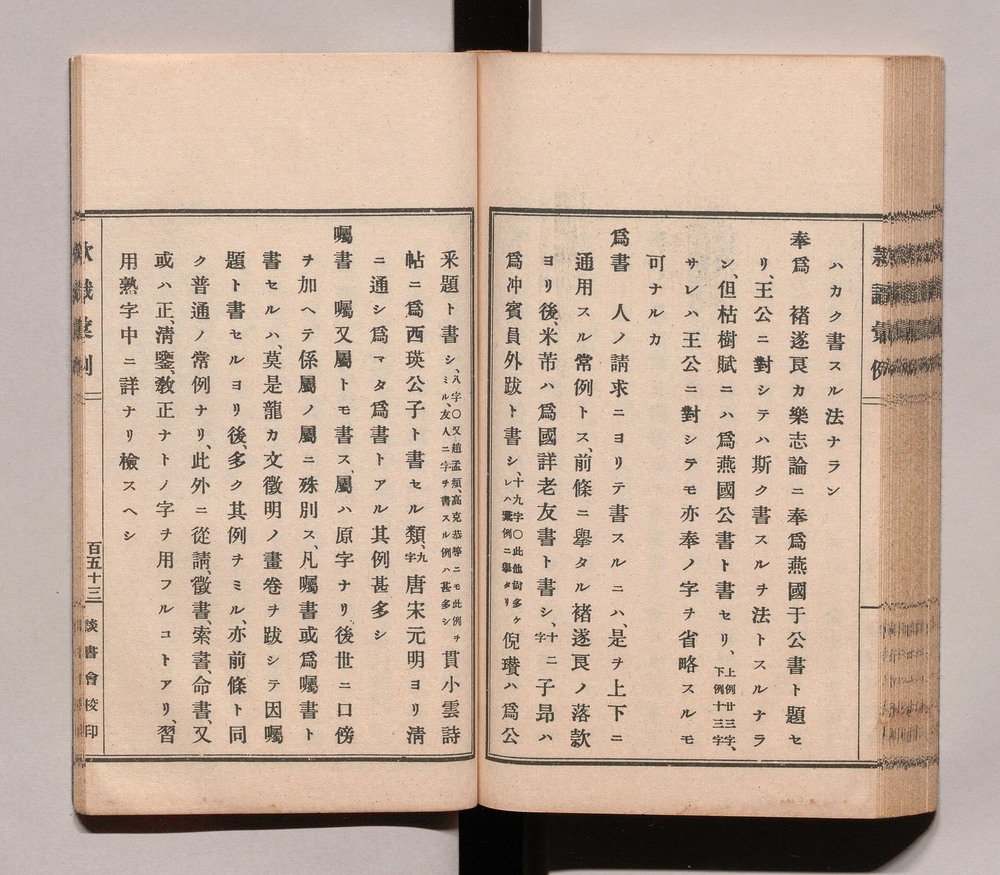 ハカク書スル法ナラン
奉爲　褚遂良カ樂志論ニ奉爲燕國于公書ト題セ
リ、王公ニ對シテハ斯ク書スルヲ法トスルナラ
ン、但枯樹賦ニハ爲燕國公書ト書セリ、上例廿三字、下例十三字
サレハ王公ニ對シテモ亦奉ノ字ヲ省略スルモ
可ナルカ
爲書　人ノ請求ニヨリテ書スルニハ、是ヲ上下ニ
通用スル常例トス、前條ニ擧タル褚遂良ノ落款
ヨリ後、米芾ハ爲國詳老友書ト書シ、十字ニ子昂ハ
爲冲賓員外跋ト書シ、十九字〇此他尙多ケレハ彙例ニ擧タリ倪瓚ハ爲公
釆題ト書シ、八字〇又趙孟頫、高克恭等ニモ此例ヲミル友人ニ字ヲ書スル例ハ甚多シ貫小雲詩
帖ニ爲西瑛公子ト書セル類、九字唐宋元明ヨリ淸
ニ通シ爲マタ爲書トアル其例甚多シ
囑書　囑又屬トモ書ス、屬ハ原字ナリ、後世ニ口傍
ヲ加ヘテ係屬ノ屬ニ殊別ス、凡囑書或爲囑書ト
書セルハ、莫是龍カ文徵明ノ畫卷ヲ跋シテ因囑
題ト書セルヨリ後、多ク其例ヲミル、亦前條ト同
ク普通ノ常例ナリ、此外ニ從請、徵書、索書、命書、又
或ハ正、淸鑒、敎正ナトノ字ヲ用フルコトアリ、習
用熟字中ニ詳ナリ檢スヘシ
百五十三
談書會校印